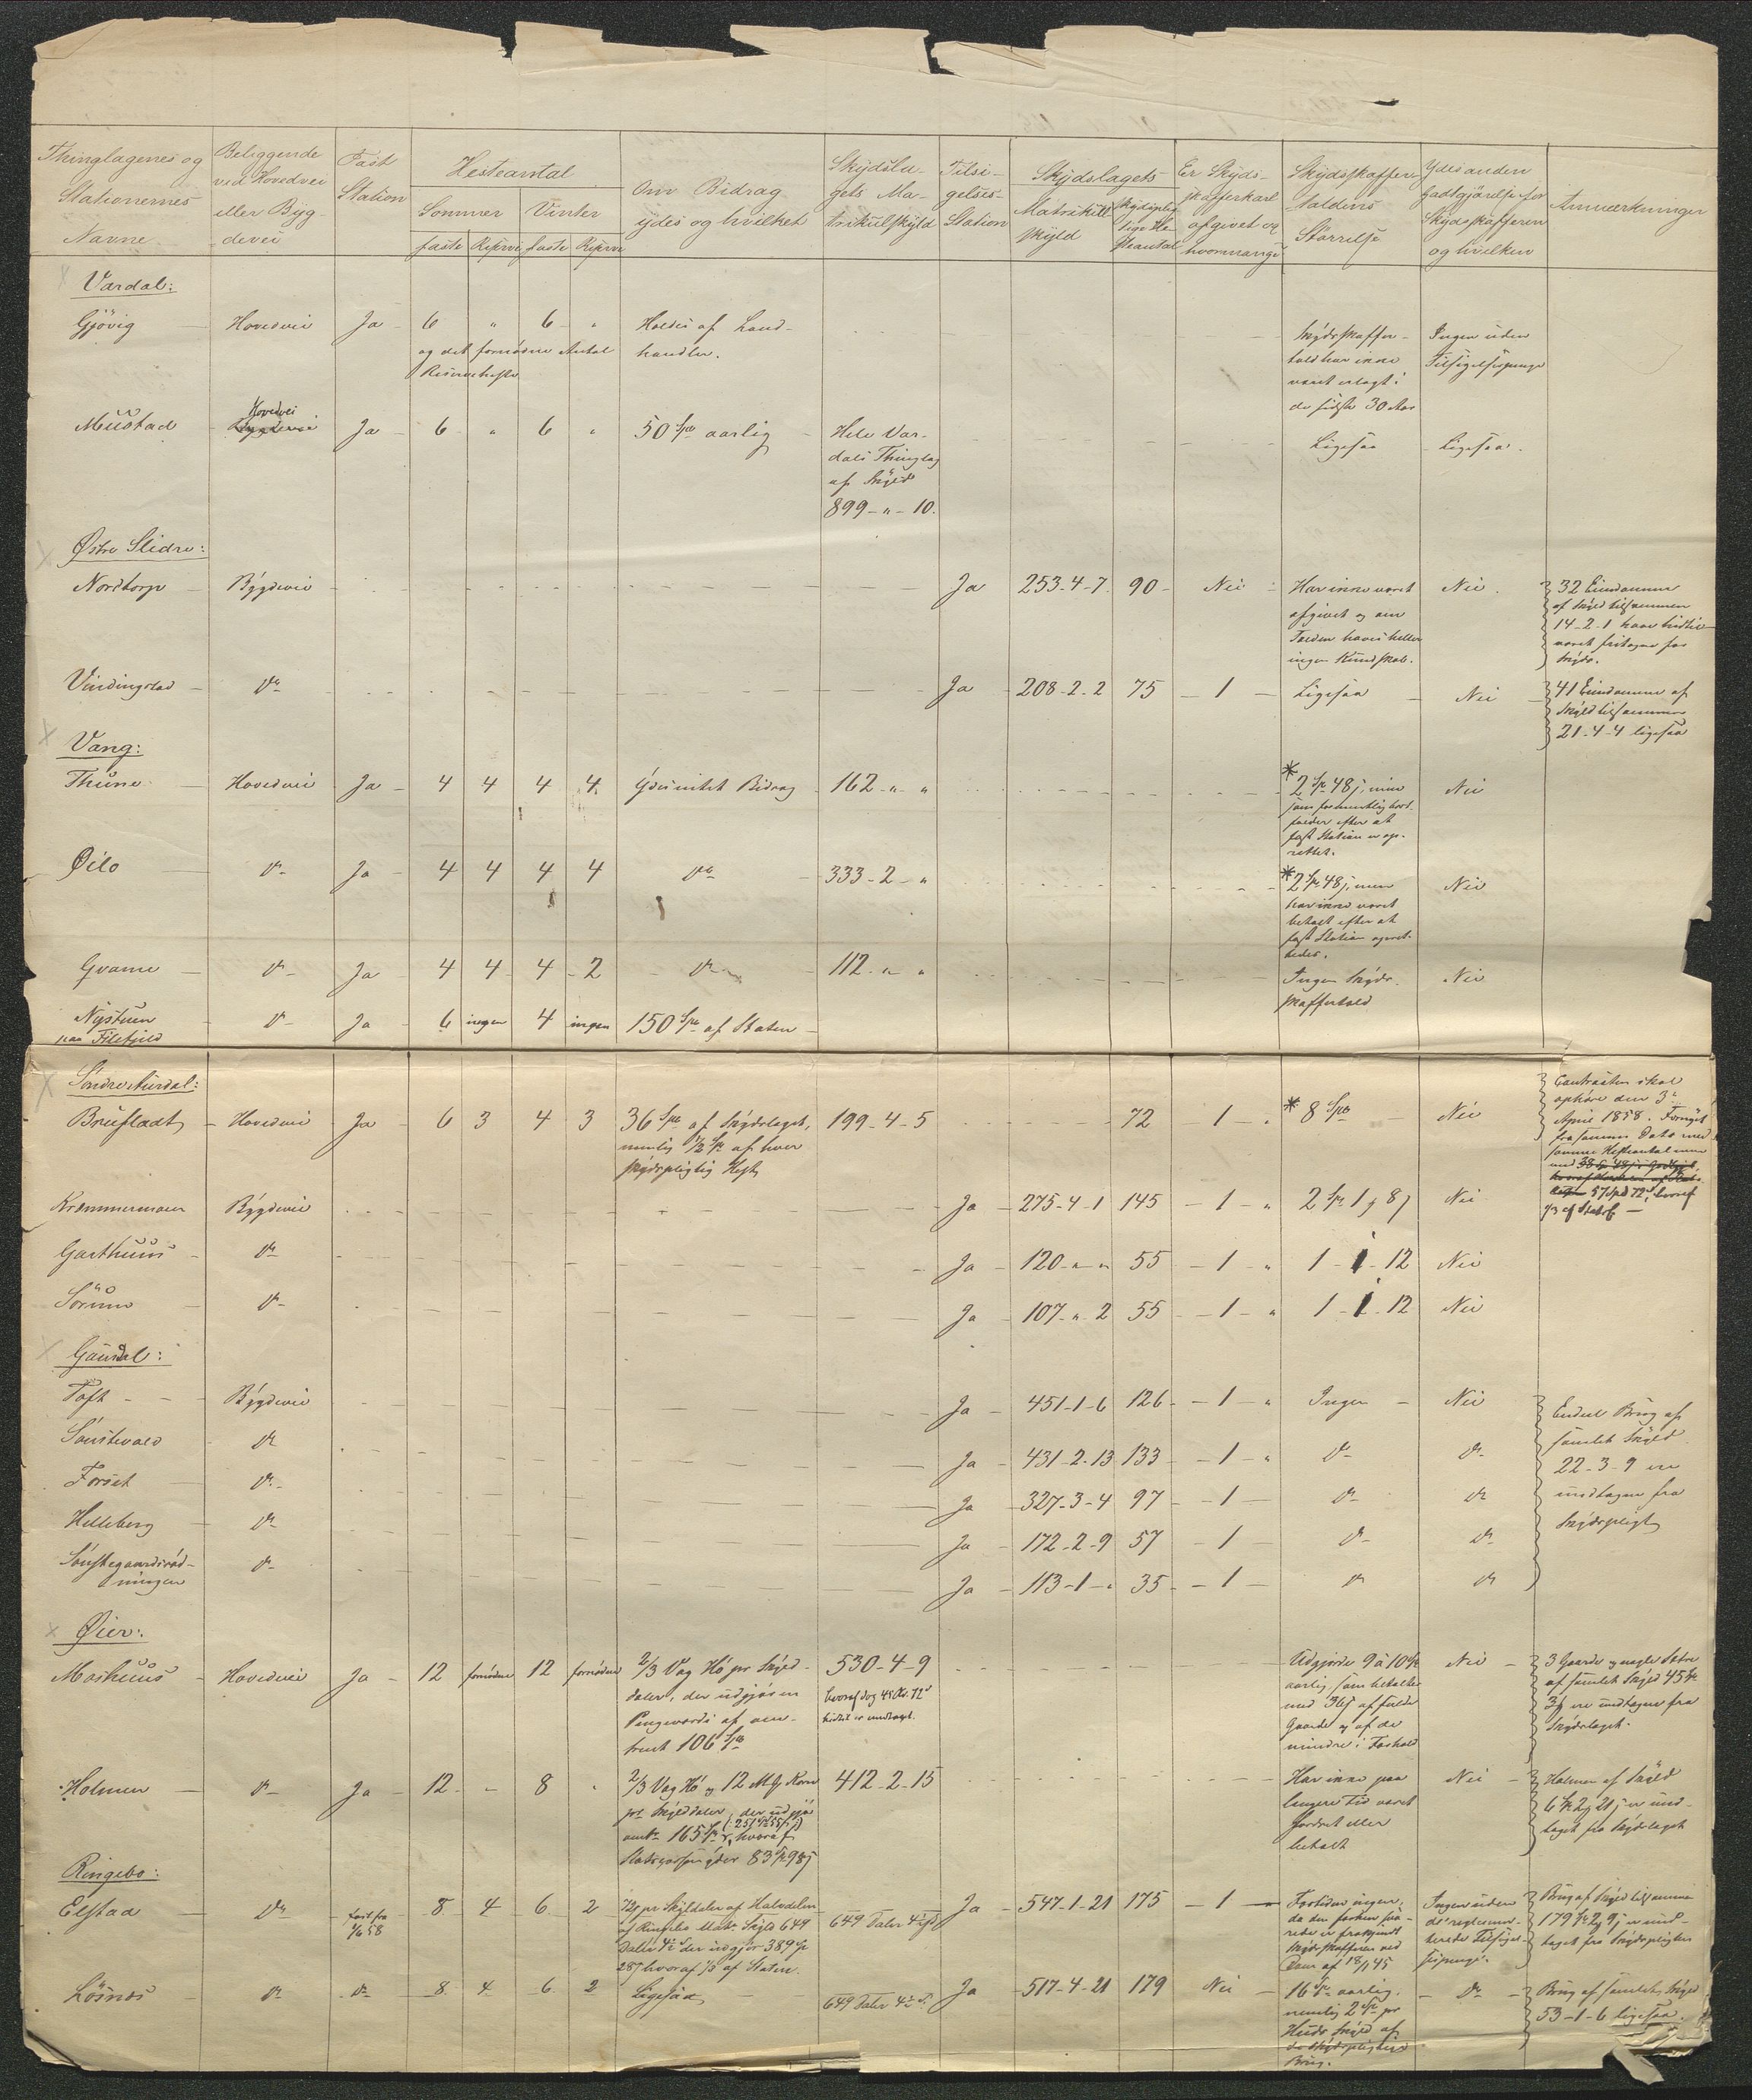 Thinglagenes og Stationernes Navne | Beliggende ved Hovedvei eller Bygdevei | Fast Station | Hesteantal | Om Bidrag ydes og hvilket | Skydslagets Matrikulskyld | Tilsigelses-Station | Skydslagets | Er Skydsskafferkarl afgivet og hvormange | Skydsskaffertoldens Størrelse | Ydes anden Godtgjørelse for Skydsskafferen og hvilken | Anmærkninger
Sommer | Vinter | Matrikulskyld | skydspligtige Hesteantal
faste | Reserve | faste | Reserve
Vardal:
Gjövig | Hovedvei | Ja | 6 | " | 6 | " | Holdes af Land-
handler.
og det fornødne Antal
Reserveheste
Skydsskaffer-
told har ikke
været erlagt i
de sidste 30 Aar
Ingen uden
Tilsigelsespenge
Mustad | Hovedvei | Ja | 6 | " | 6 | " | 50 Spd aarlig | Hele Var-
dals Thinglag
af Skyld
899 - " - 10.
Ligesaa | Ligesaa.
Østre Slidre:
Nordtorp | Bÿgdevei | Ja | 253-4-7 | 90 | Nei | Har ikke været
afgivet og om
Tolden haves heller
ingen Kundskab.
Nei.
32 Eiendomme
af Skyld tilsammen
14-2-1 have hidtil
været fritagne for
Skyds.
Vindingstad | do | Ja | 208-2-2 | 75 | 1 | Ligesaa | Nei | 41 Eiendomme af
Skyld tilsammen
21-4-4 ligesaa
Vang:
Thune | Hovedvei | Ja | 4 | 4 | 4 | 4 | Ydes intet Bidrag | 162 - " - " | * 2 Spd 48 ß, men
som formentlig bort-
falder efter at
fast Station er op-
rettet.
Nei
Øilo | do | Ja | 4 | 4 | 4 | 4 | do | 333-2-" | * 2 Spd 48 ß, men
har ikke været
betalt efter at
fast Station opret-
tedes.
Nei
Qvame | do | Ja | 4 | 4 | 4 | 2 | do | 112 - " - " | Ingen Skyds-
skaffertold
Nei
Nÿstuen
paa Filefjeld | do | Ja | 6 | ingen | 4 | ingen | 150 Spd af Staten
Søndre Aurdal:
Brufladt | Hovedvei | Ja | 6 | 3 | 4 | 3 | 36 Spd af Skydslaget,
nemlig 1/2 Spd af hver
skydspligtig Hest
199-4-5 | 72 | 1 | * 8 Spd | Nei
Contracten skal
ophøre den 3
April 1858. Fornyet
fra samme Dato med
samme Hesteantal men
med
57 Spd 72 ß, hvoraf
1/3 af Statsk.
Kræmmermoen | Bÿgdevei | Ja | 275-4-1 | 145 | 1 | 2 Spd 1 ƒ 8 ß | Nei
Garthuus | do | Ja | 120 - " - " | 55 | 1 | 1 - 1 - 12 | Nei
Sörum | do | Ja | 107 - " - 2 | 55 | 1 | 1 - 1 - 12 | Nei
Gausdal:
Toft | Bÿgdevei | Ja | 451-1-6 | 126 | 1 | Ingen | Nei
Sønstevold | do | Ja | 431-2-13 | 133 | 1 | do | do
Forset | do | Ja | 327-3-4 | 97 | 1 | do | do
Helleberg | do | Ja | 172-2-9 | 57 | 1 | do | do
Sønstegaardsrød-
ningen | do | Ja | 113-1-" | 35 | 1 | do | do
Endeel Brug af
samlet Skyld
22-3-9 ere
undtagne fra
Skydspligt
Øier:
Moshuus | Hovedvei | Ja | 12 | fornødne | 12 | fornødne | 2/3 Vog Hö pr Skyld-
daler, der udgjør en
Pengeværdi af om-
trent 106 Spd
530-4-9
hvoraf dog 45 Rd. 72 ß
hidtil er undtaget.
Udgjorde 9 à 10 Spd
aarlig som betaltes
med 36 ß af fulde
Gaarde og af de
mindre i Forhold
Nei
3 Gaarde og nogle Sætre
af samlet Skyld 45 Spd
3 ƒ ere undtagne fra
Skydslaget.
Holmen | do | Ja | 12 | " | 8 | " | 2/3 Vog Hö og 12 Mk Korn
pr Skylddaler, der udgjør
omtr 165 Spd, hvoraf
Statscassen yder 83 Spd 98 ß
412-2-15
Har ikke paa
længere Tid været
fordret eller
betalt
Nei
Holmen af Skyld
6 Spd 2 ƒ 21 ß er und-
taget fra Skydslaget
Ringebo:
Elstad | do | fast fra
1/4 58 | 8 | 4 | 6 | 2 | 72 ß pr Skylddaler af Halvdelen
af Ringebo Matr. Skyld 649
Daler 4 der udgjør 389 Spd
28 ß hvoraf 1/3 af Staten.
649 Daler 4 | Ja | 547-1-21 | 175 | 1 | For tiden ingen,
da den forhen sva-
rede er frakjendt
Skydsskafferen ved
Dom af 18/1 45
Ingen uden
de reglemen-
terede Tilsigel-
sespenge.
Brug af Skyld tilsammen
179 Spd 2 ƒ 9 ß er und-
taget fra Skydspligten
Lösnes | do | do | 8 | 4 | 6 | 2 | Ligesaa | 649 Daler 4 | Ja | 517-4-21 | 179 | Nei | 16 Spd aarlig,
nemlig 2 Spd pr
Huds Skyld af
de Skydspligtige
Brug.
do
Brug af samlet Skyld
53-1-6 ligesaa.